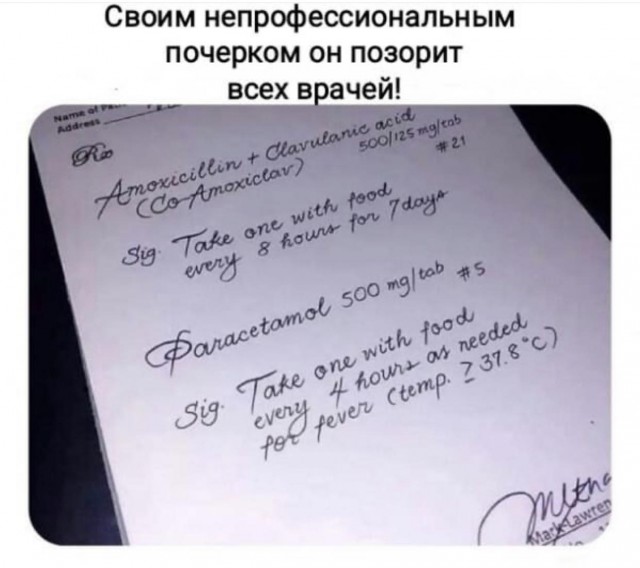 Своим непрофессиональным
почерком он позорит
всех врачей!
Name of
Address
Rx
Amoxicillin + Clavulanic acid
(Co-Amoxiclav) 500/125 mg/tab
#21
Sig. Take one with food
every 8 hours for 7 days
Paracetamol 500 mg/tab #5
Sig. Take one with food
every 4 hours as needed
for fever (temp. ≥ 37.8°C)
Mark Lawren